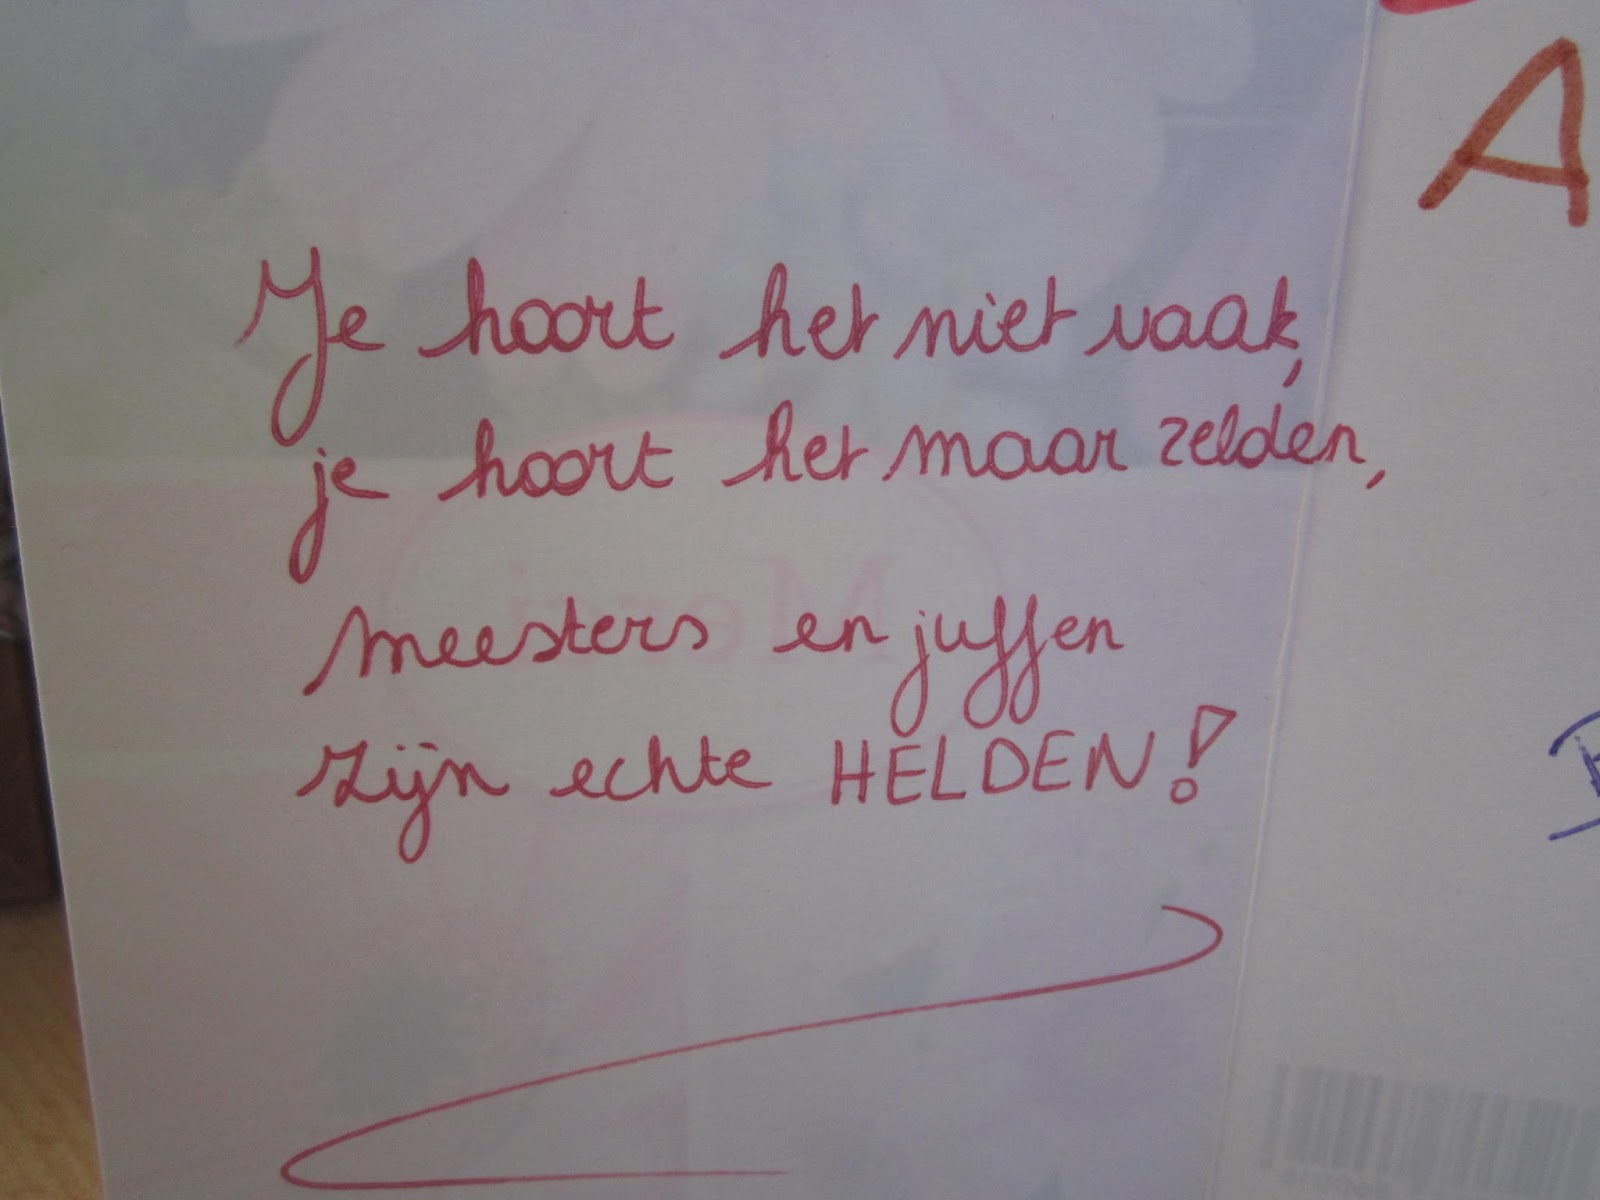 Je hoort het niet vaak,
je hoort het maar zelden,
meesters en juffen
zijn echte HELDEN!
A
Merci